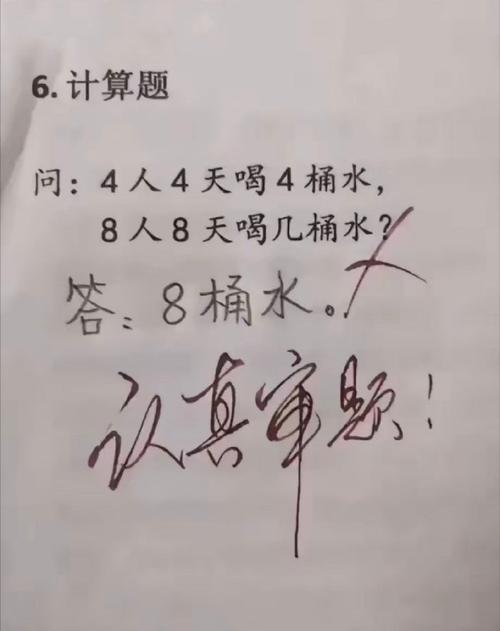 6. 计算题
问：4人4天喝4桶水，
8人8天喝几桶水？
答：8桶水。
认真审题！